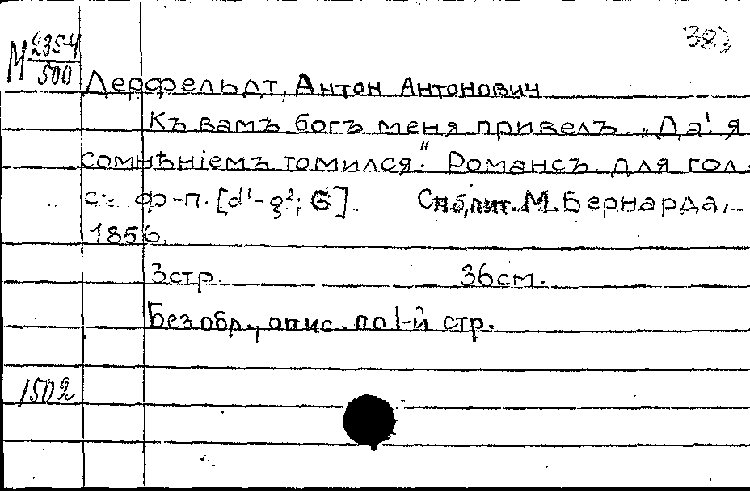 М 2354
500
383
Дерфельдт, Антон Антонович
Къ вамъ богъ меня привелъ „Да! я
сомнѣніемъ томился." Романсъ для гол.
съ ф-п. [d¹-g²; G]. Спб, лит. М. Бернарда,
1856.
3стр. 36см.
Без обр., опис. по 1-й стр.
1502